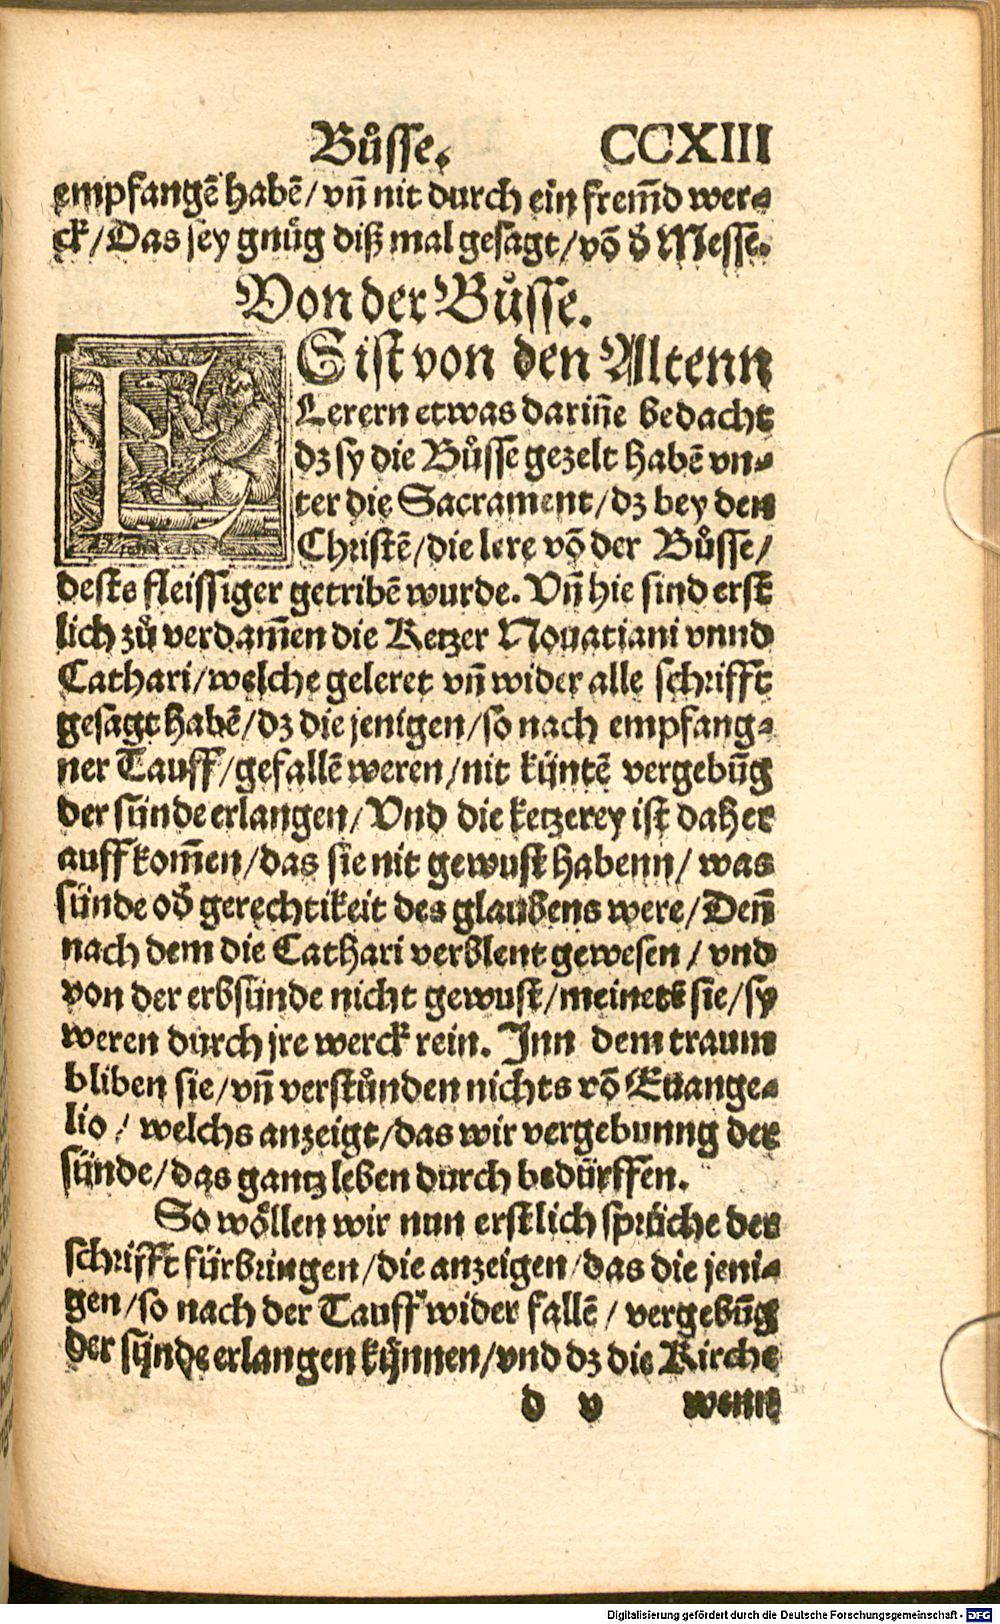 Bůsse. CCXIII
empfangē habē/ vñ nit durch ein frem̄d wer⸗
ck/ Das sey gnůg diß mal gesagt/ võ d̕ Messe.
Von der Bůsse.
ES ist von den Altenn
Lerern etwas dariñe bedacht
dz sy die Bůsse gezelt habē vn⸗
ter die Sacrament/ dz bey den
Christē/ die lere võ der Bůsse/
dests fleissiger getribē wurde. Vñ hie sind erst
lich zů verdam̄en die Ketzer Nouatiani vnnd
Cathari/ welche geleret vñ wider alle schrifft
gesagt habē/ dz die jenigen/ so nach empfang⸗
ner Tauff/ gefallē weren/ nit küntē vergebūg
der sünde erlangen/ Vnd die ketzerey ist daher
auff kom̄en/ das sie nit gewust habenn/ was
sünde od̕ gerechtikeit des glaubens were/ Deñ
nach dem die Cathari verblent gewesen/ vnd
von der erbsünde nicht gewust/ meinets sie/ sy
weren durch jre werck rein. Jnn dem traum
bliben sie/ vñ verstůnden nichts võ Euange⸗
lio/ welchs anzeigt/ das wir vergebunng der
sünde/ das gantz leben durch bedürffen.
So wöllen wir nun erstlich sprüche der
schrifft fürbringen/ die anzeigen/ das die jeni⸗
gen/ so nach der Tauff wider fallē/ vergebūg
der sünde erlangen künnen/ vnd dz die Kirche
d v wenn
Digitalisierung gefördert durch die Deutsche Forschungsgemeinschaft - DFG